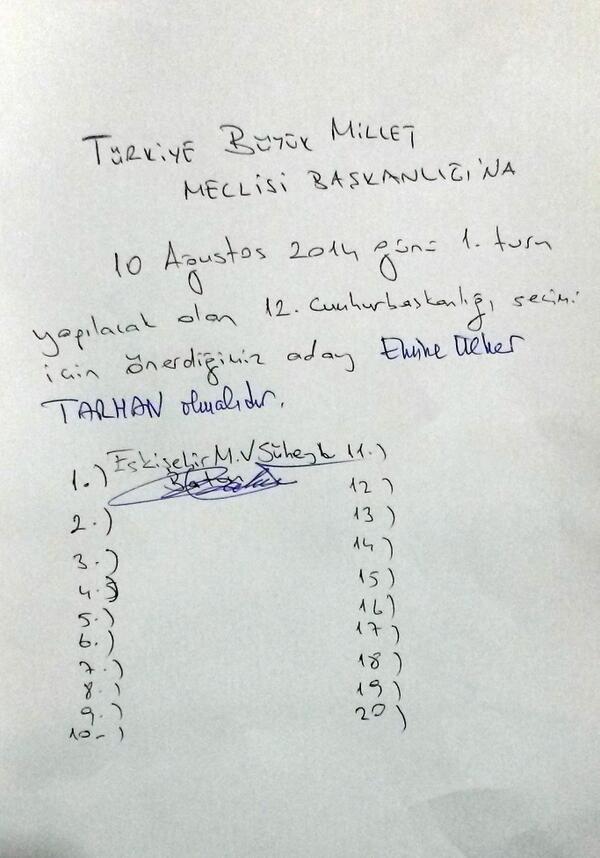 TÜRKİYE BÜYÜK MİLLET
MECLİSİ BAŞKANLIĞI'NA
10 Ağustos 2014 günü 1. turu
yapılacak olan 12. Cumhurbaşkanlığı seçimi
için önerdiğimiz aday Emine Ülker
TARHAN olmalıdır.
1.) Eskişehir M.V Süheyl 11.)
Batum
12)
2.)
13)
3.)
14)
4.)
15)
5.)
16)
6.)
17)
7.)
18)
8.)
19)
9.)
20)
10-)